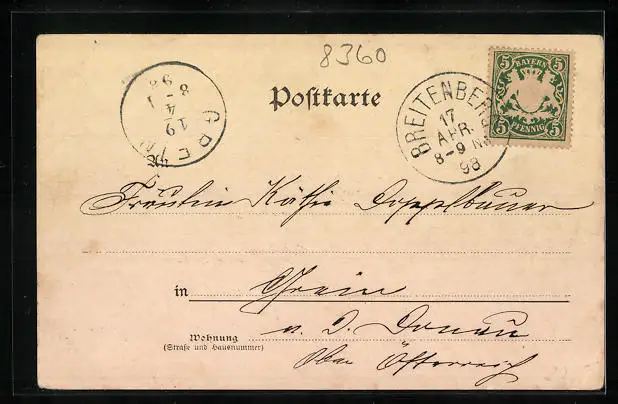 8360
Postkarte
5 BAYERN 5
5 PFENNIG 5
BREITENBERG
17
APR.
8-9 N
98
GREIN
19
4
98
Fräulein Käthie Doppelbauer
in Grein
a. d. Donau
Wohnung
(Straße und Hausnummer)
Ober Österreich